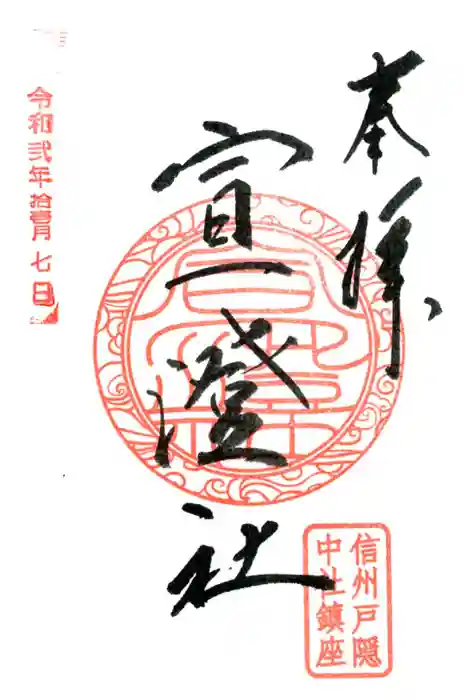 奉拝
宣澄社
令和弐年拾壹月七日
信州戸隠
中社鎮座